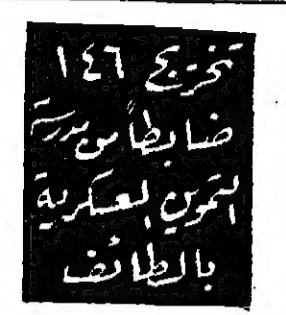 تخريج ١٤٦
ضابطاً من مدرسة
التموين العسكرية
بالطائف